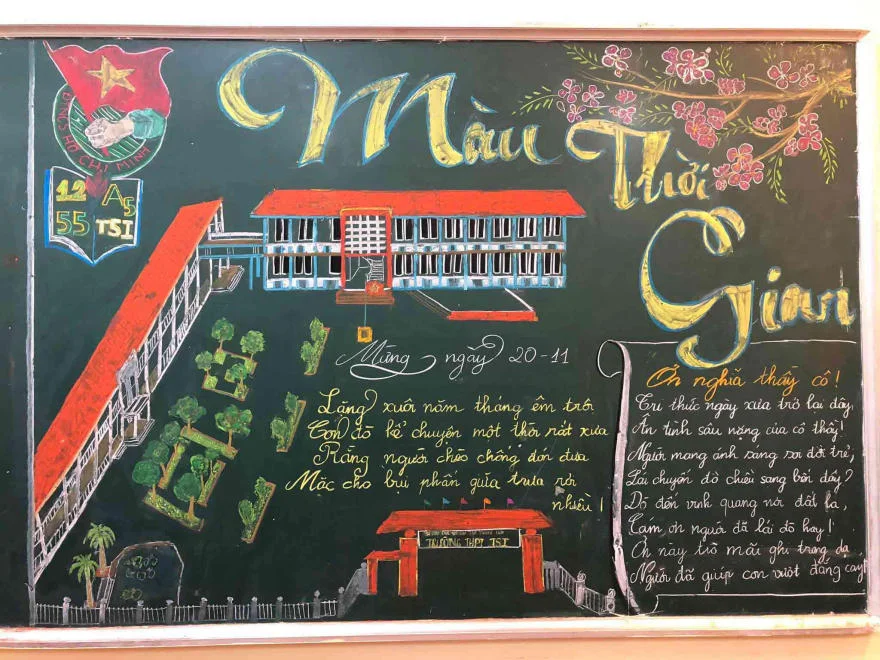 ĐOÀN TNCS HỒ CHÍ MINH
12 A5
55 TSI
Màu
Thời
Gian
Mừng ngày 20-11
Lặng xuôi năm tháng êm trôi
Con đò kể chuyện một thời rất xưa
Rằng người chèo chống đón đưa
Mặc cho bụi phấn giữa trưa rơi
nhiều!
TRƯỜNG THPT TSI
Ơn nghĩa thầy cô!
Tri thức ngày xưa trở lại đây,
Ân tình sâu nặng của cô thầy!
Người mang ánh sáng soi đời trẻ,
Lái chuyến đò chiều sang bến đầy?
Đò đến vinh quang nơi đất lạ,
Cam ơn người đã lái đò hay!
Ơn này trò mãi ghi trong dạ
Người đã giúp con vượt đắng cay!